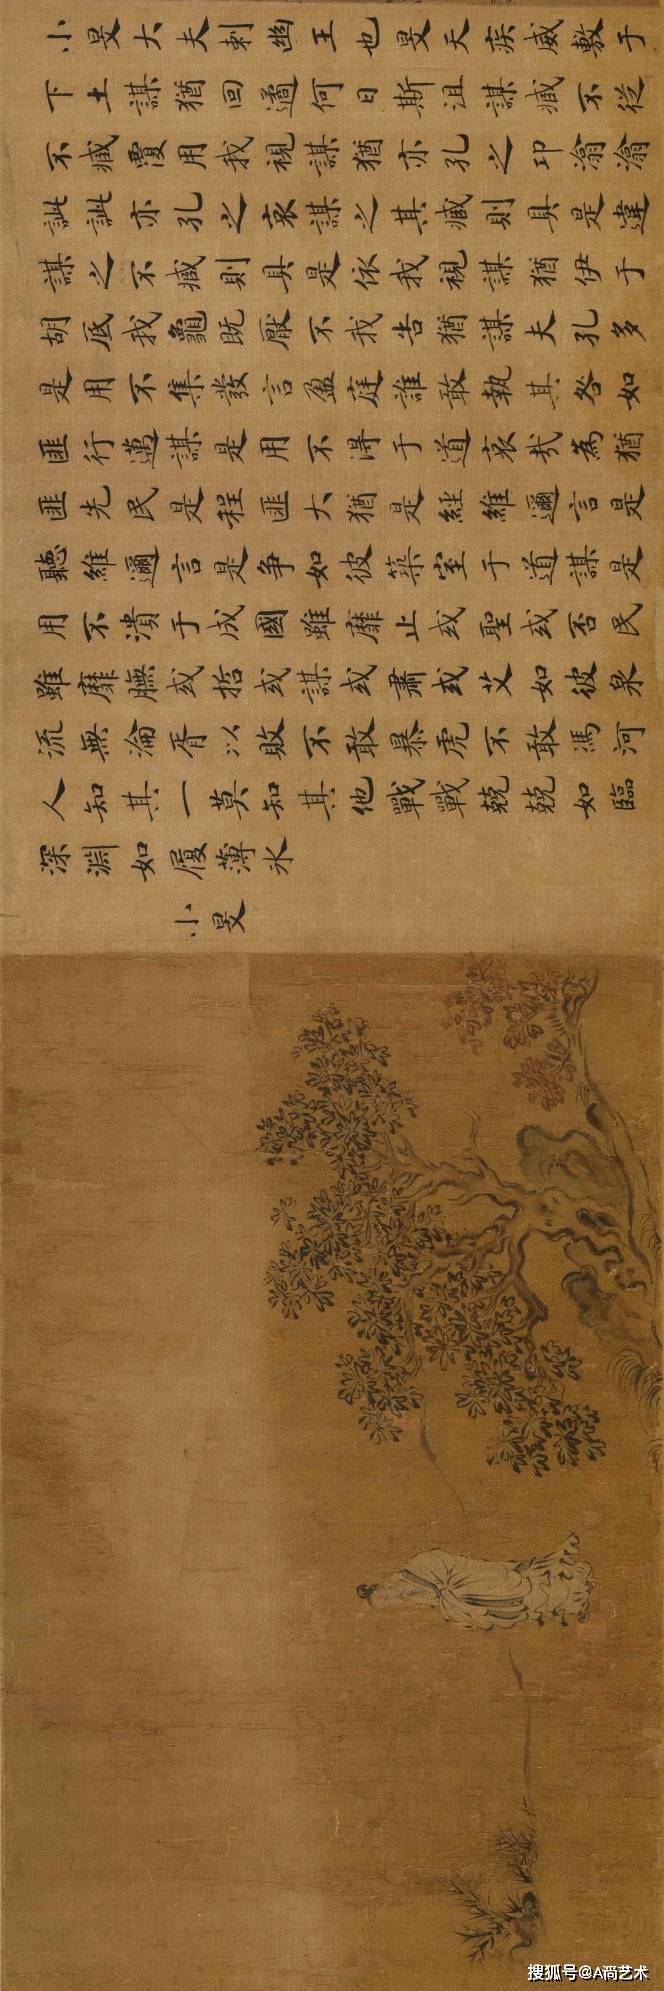 小旻大夫刺幽王也旻天疾威敷于
下土謀猶回遹何日斯沮謀臧不從
不臧覆用我視謀猶亦孔之卭滃滃
訿訿亦孔之哀謀之其臧則具是違
謀之不臧則具是依我視謀猶伊于
胡底我龜既厭不我告猶謀夫孔多
是用不集發言盈庭誰敢執其咎如
匪行邁謀是用不得于道哀哉為猶
匪先民是程匪大猶是經維邇言是
聽維邇言是争如彼築室于道謀是
用不潰于成國雖靡止或聖或否民
雖靡膴或哲或謀或肅或艾如彼泉
流無淪胥以敗不敢暴虎不敢馮河
人知其一莫知其他戰戰兢兢如臨
深淵如履薄氷
小旻
搜狐号@A尚艺术